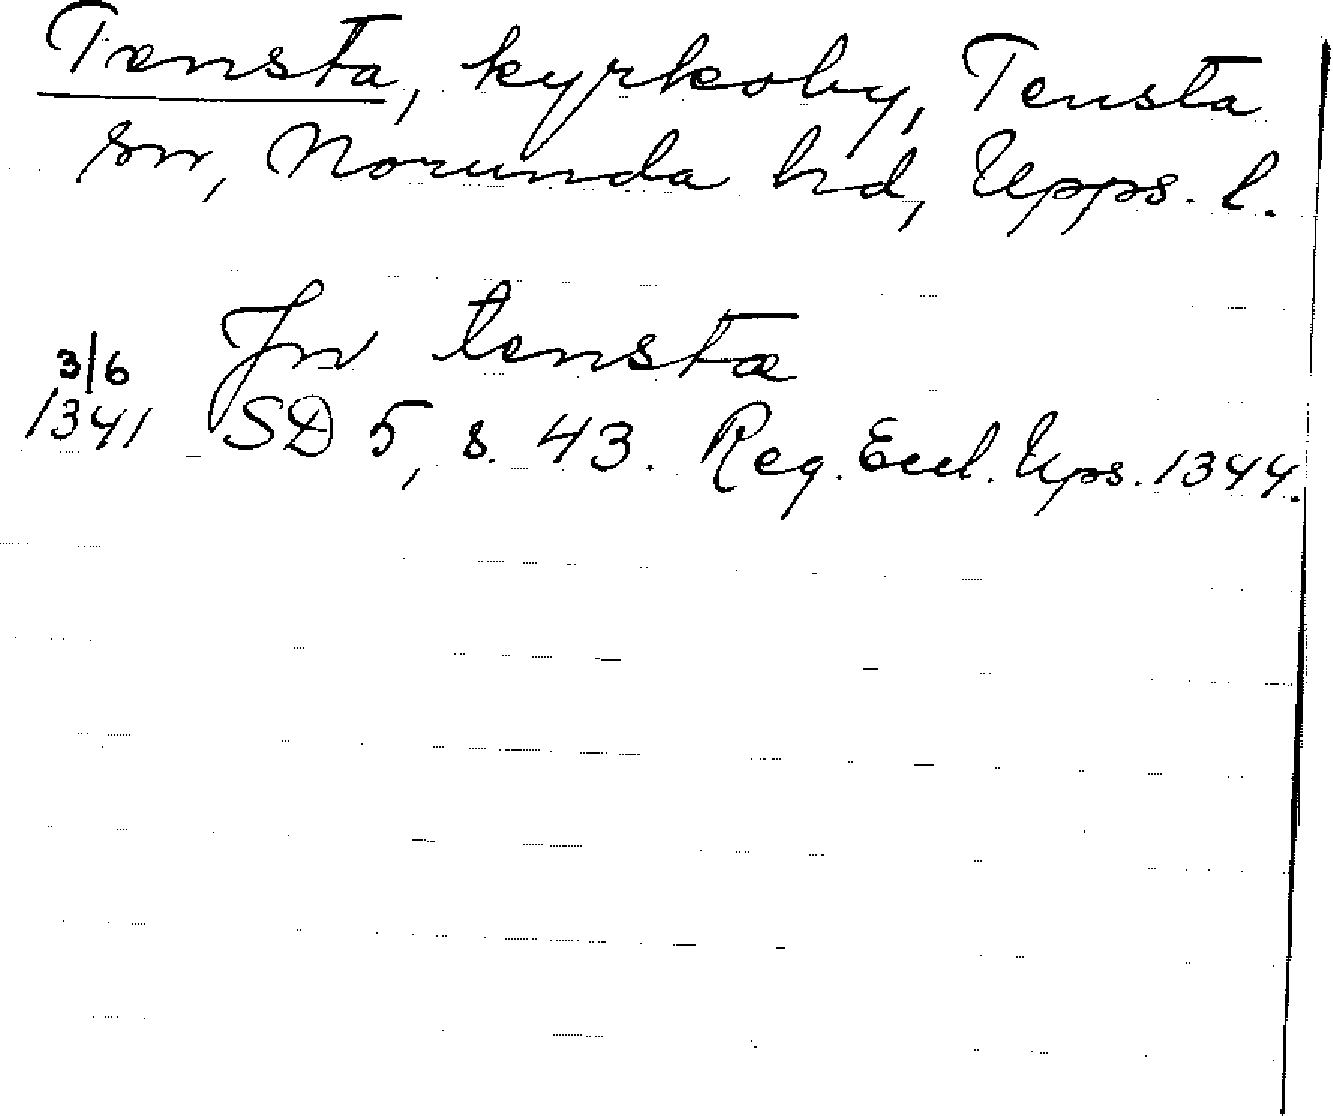 Tensta, kyrkoby, Tensta
sn, Norunda hd, Upps. l.
Jn tensta
3/6
1341 SD 5, s. 43. Reg. Eccl. Ups. 1344.